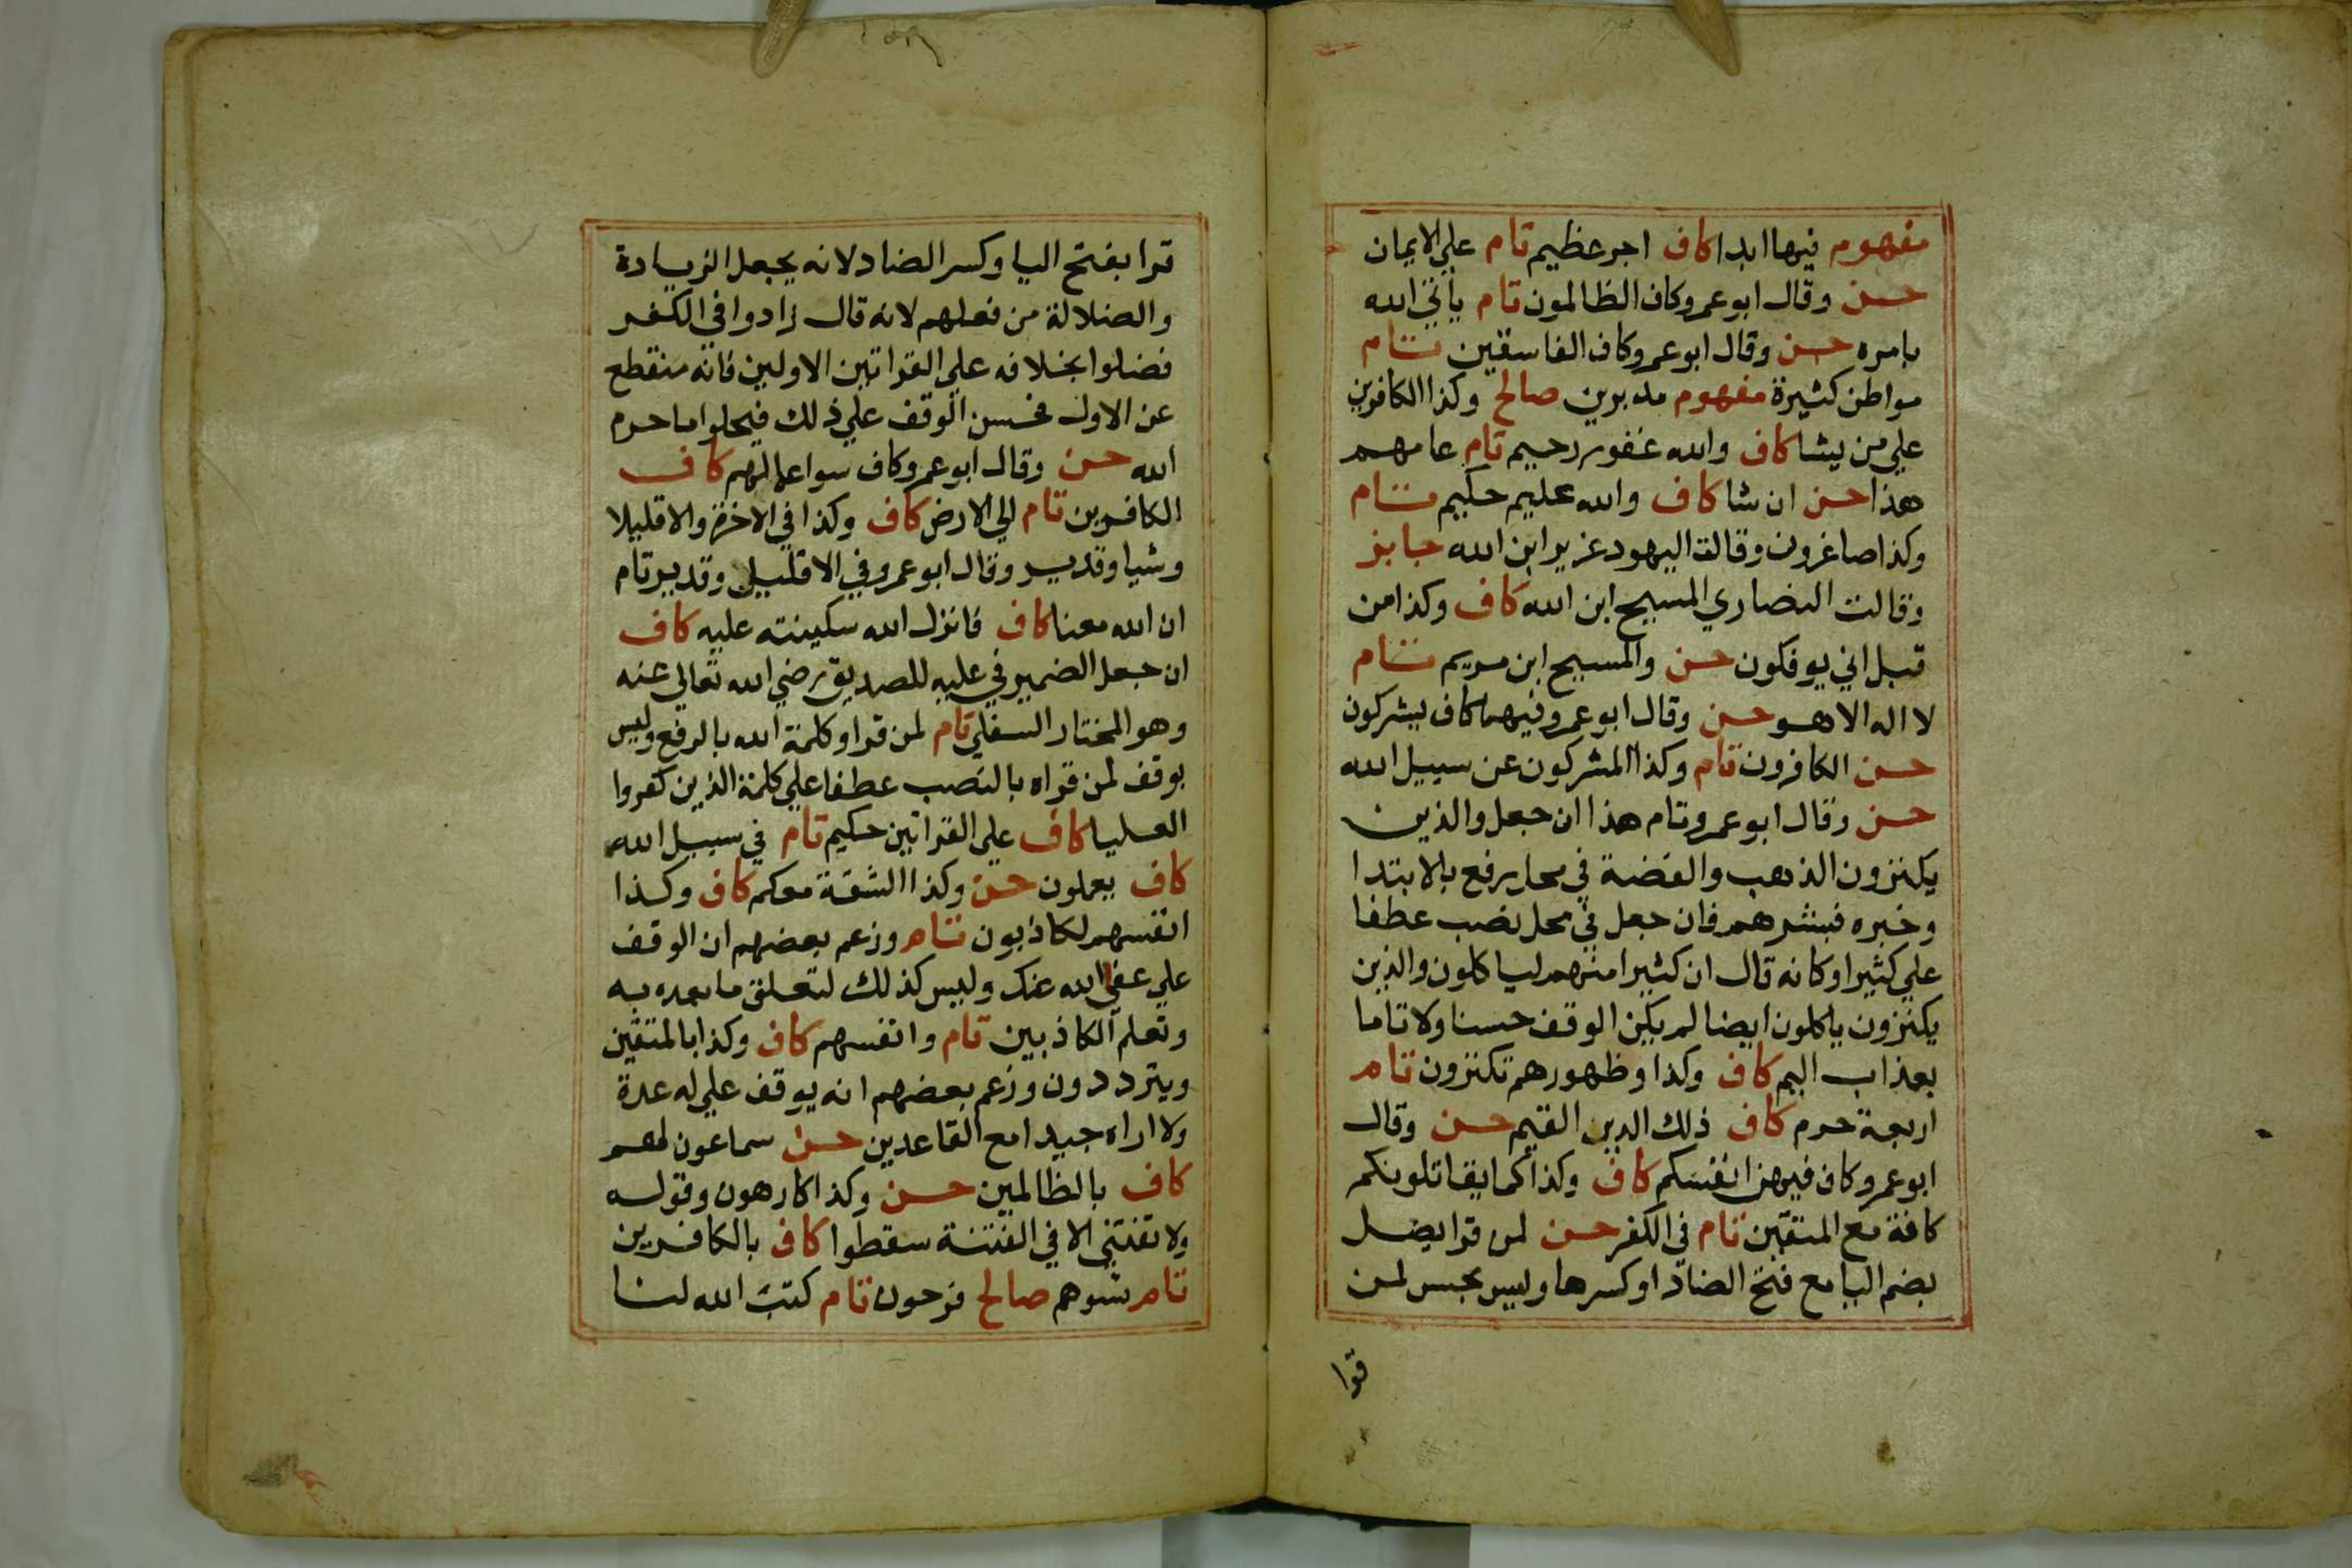 مفهوم فيها ابدا كاف اجر عظيم تام علي الايمان
حسن وقال ابو عمرو كاف الظالمون تام ياتي الله
بامره حسن وقال ابو عمرو كاف الفاسقين تام
مواطن كثيرة مفهوم مدبرين صالح وكذا الكافرين
علي من يشا كاف والله غفور رحيم تام عامهم
هذا حسن ان شا كاف والله عليم حكيم تام
وكذا صاغرون وقالت اليهود عزير ابن الله جايز
وقالت النصاري المسيح ابن الله كاف وكذا من
قبل اني يوفكون حسن والمسيح ابن مريم تام
لا اله الا هو حسن وقال ابو عمرو فيهما كاف يشركون
حسن الكافرون تام وكذا المشركون عن سبيل الله
حسن وقال ابو عمرو تام هذا ان جعل والذين
يكنزون الذهب والفضة في محل رفع بالابتدا
وخبره فبشرهم فان جعل في محل نصب عطفا
علي كثيرا وكانه قال ان كثيرا منهم لياكلون والذين
يكنزون ياكلون ايضا لم يكن الوقف حسنا ولا تاما
بعذاب اليم كاف وكذا وظهورهم تكنزون تام
اربعة حرم كاف ذلك الدين القيم حسن وقال
ابو عمرو كاف فيهن انفسكم كاف وكذا كما يقاتلونكم
كافة مع المتقين تام في الكفر حسن لمن قرا يضل
بضم اليا مع فتح الضاد او كسرها وليس بحسن لمن
قرا
قرا بفتح اليا وكسر الضاد لانه يجعل الزيادة
والضلالة من فعلهم لانه قال زادوا في الكفر
فضلوا بخلافه علي القراتين الاولين فانه منقطع
عن الاول فحسن الوقف علي ذلك فيحلوا ما حرم
الله حسن وقال ابو عمرو كاف سوا اعمالهم كاف
الكافرين تام الي الارض كاف وكذا في الاخرة والا قليلا
وشيا وقدير وقال ابو عمرو في الا قليل وقدير تام
ان الله معنا كاف فانزل الله سكينته عليه كاف
ان جعل الضمير في عليه للصديق رضي الله تعالي عنه
وهو المختار السفلي تام لمن قرا وكلمة الله بالرفع وليس
بوقف لمن قراه بالنصب عطفا علي كلمة الذين كفروا
العليا كاف علي القراتين حكيم تام في سبيل الله
كاف يعملون حسن وكذا الشقة معكم كاف وكذا
انفسهم لكاذبون تام وزعم بعضهم ان الوقف
علي عفي الله عنك وليس كذلك لتعلق ما بعده به
وتعلم الكاذبين تام وانفسهم كاف وكذا بالمتقين
ويترددون وزعم بعضهم انه يوقف علي له عدة
ولا اراه جيدا مع القاعدين حسن سماعون لهم
كاف بالظالمين حسن وكذا كارهون وقوله
ولا تفتني الا في الفتنة سقطوا كاف بالكافرين
تام تسوهم صالح فرحون تام كتب الله لنا